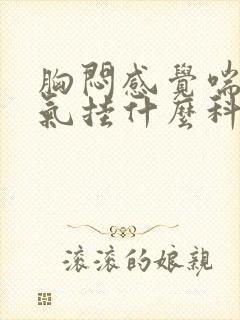 胸悶感覺喘
氣挂什麼科
滾滾的娘親